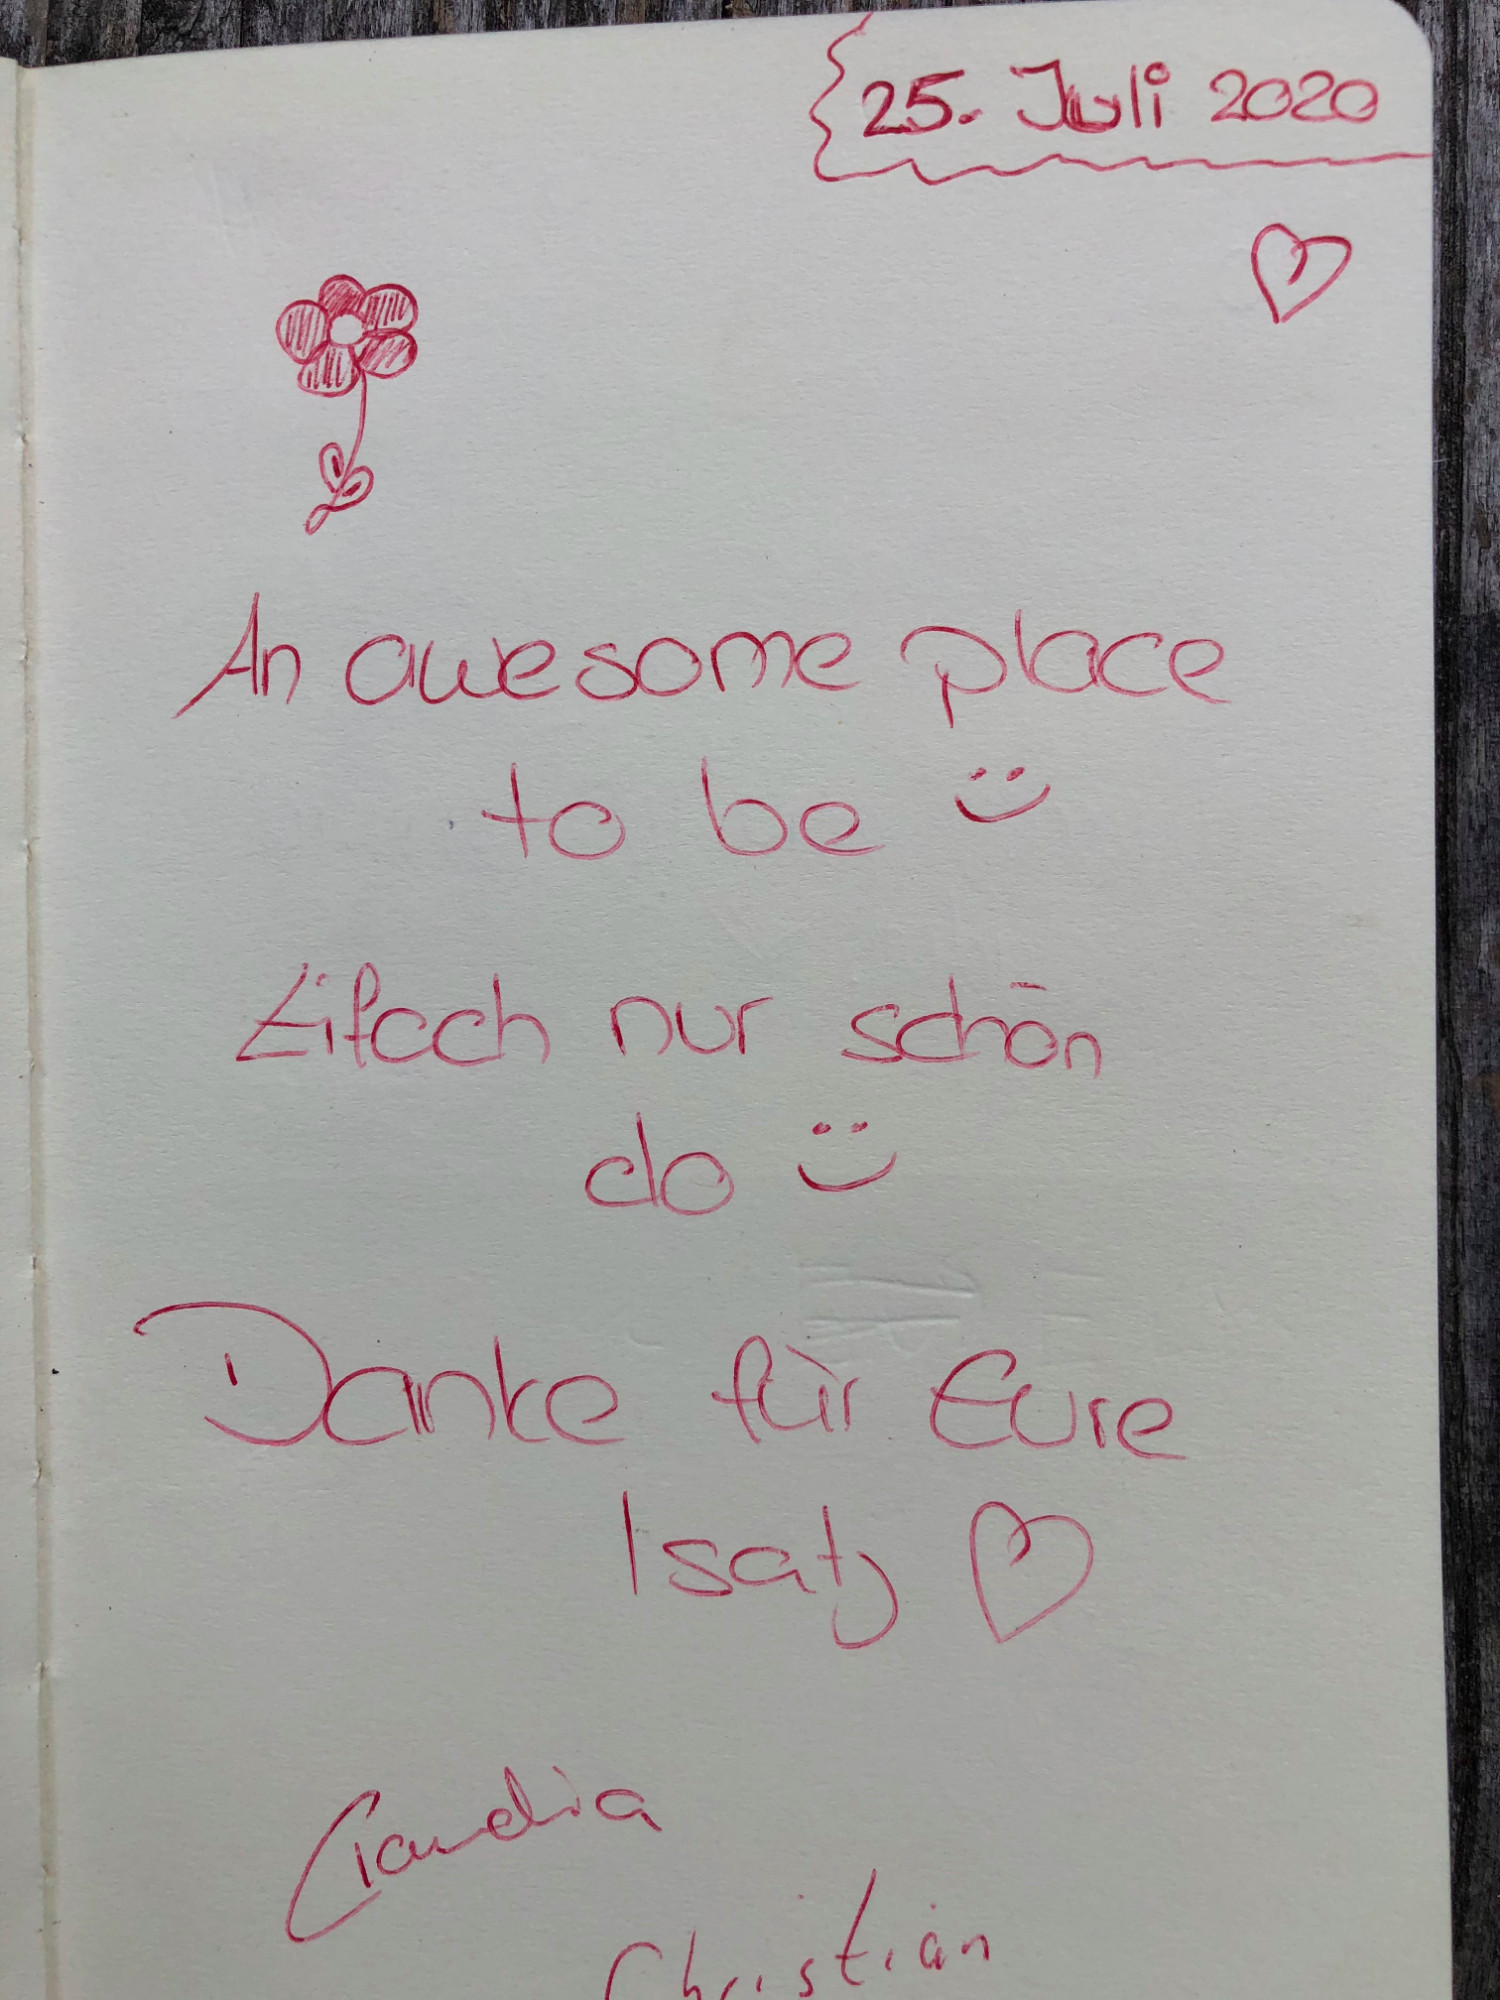 25. Juli 2020
An awesome place
to be
Eifach nur schön
do
Danke für Eure
Isatz
Claudia
Christian